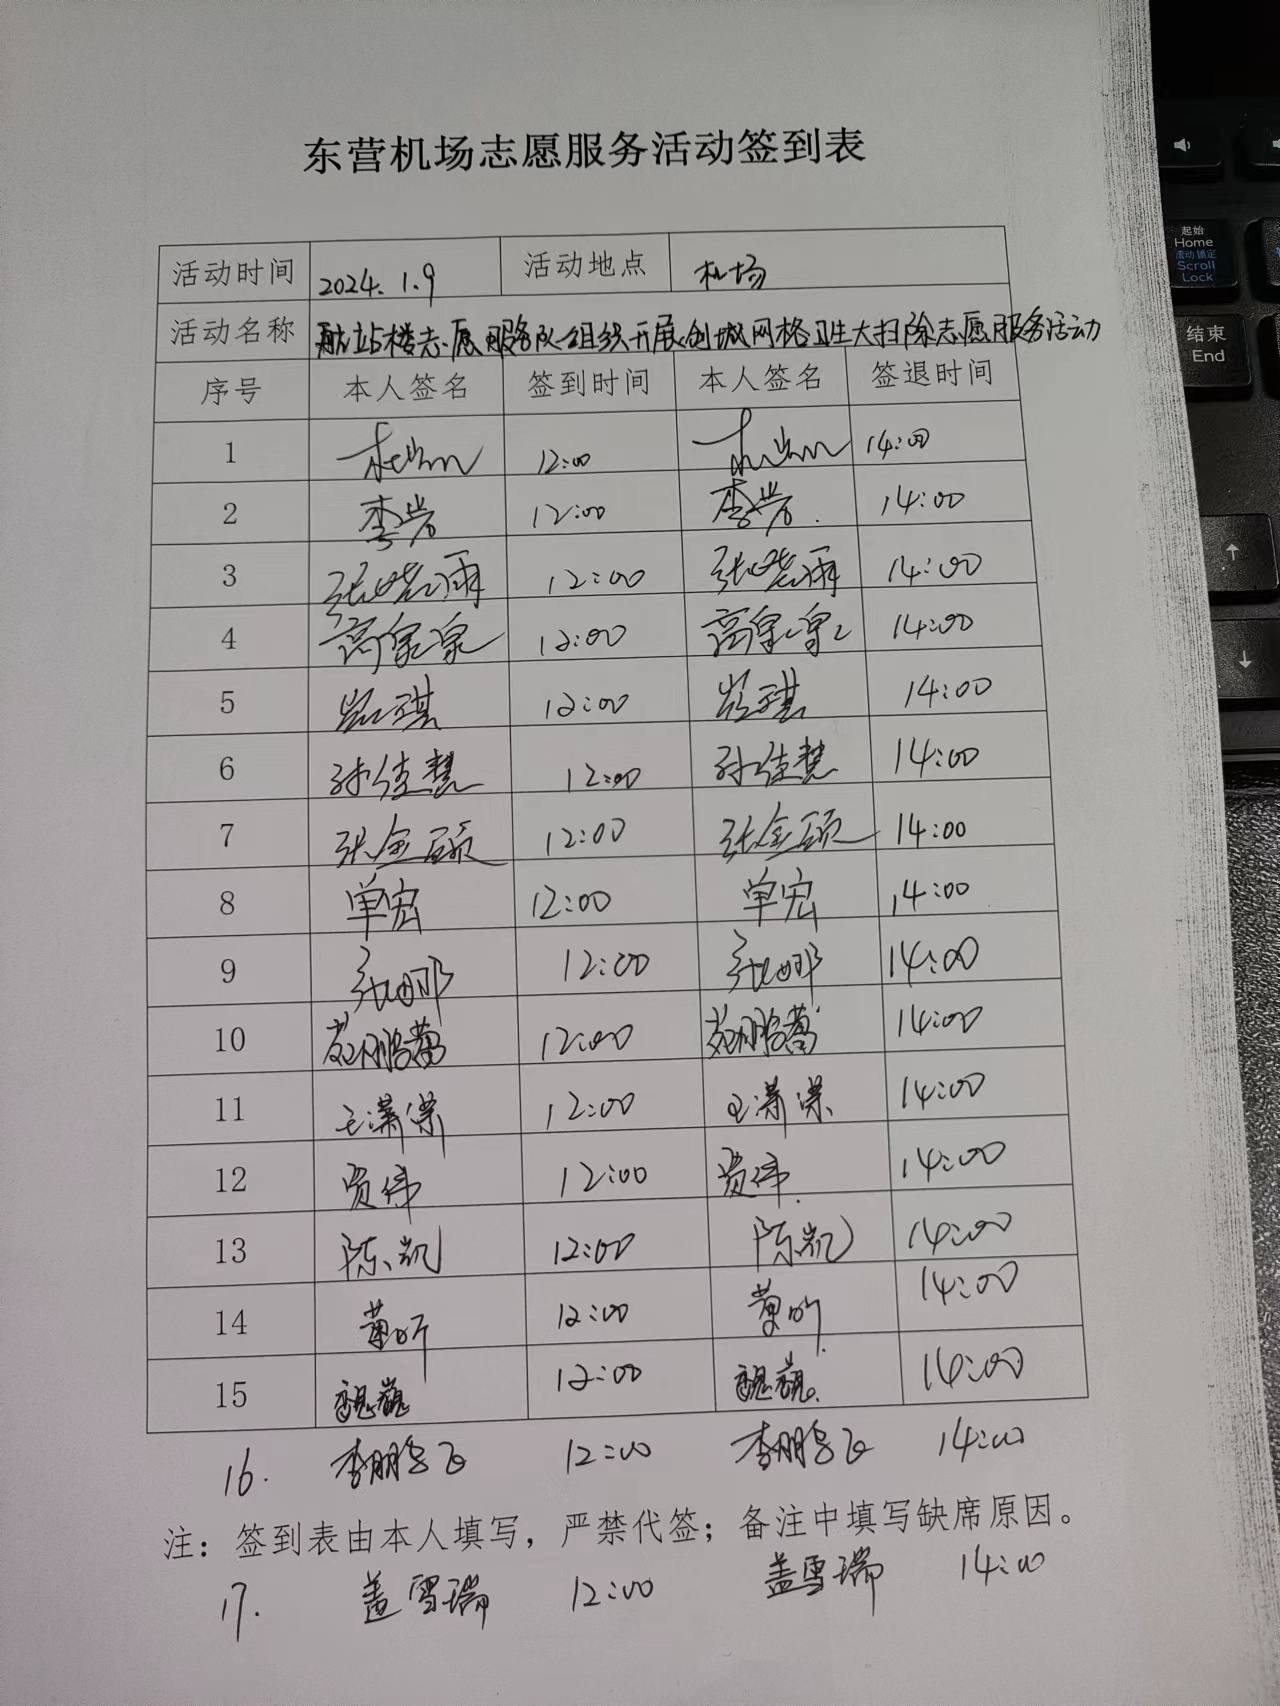 东营机场志愿服务活动签到表
活动时间 2024.1.9 活动地点 机场
活动名称 航站楼志愿服务队组织开展创城网格卫生大扫除志愿服务活动
序号 本人签名 签到时间 本人签名 签退时间
1 12:00 14:00
2 李岩 12:00 李岩 14:00
3 张晓雨 12:00 张晓雨 14:00
4 高泉泉 12:00 高泉泉 14:00
5 12:00 14:00
6 孙佳慧 12:00 孙佳慧 14:00
7 张金硕 12:00 张金硕 14:00
8 单宏 12:00 单宏 14:00
9 张娜 12:00 张娜 14:00
10 12:00 14:00
11 王潇 12:00 王潇 14:00
12 贾伟 12:00 贾伟 14:00
13 陈凯 12:00 陈凯 14:00
14 黄昕 12:00 黄昕 14:00
15 魏巍 12:00 魏巍 14:00
16. 李鹏飞 12:00 李鹏飞 14:00
注：签到表由本人填写，严禁代签；备注中填写缺席原因。
17. 盖雪瑞 12:00 盖雪瑞 14:00
起始
Home
滚动锁定
Scroll
Lock
结束
End